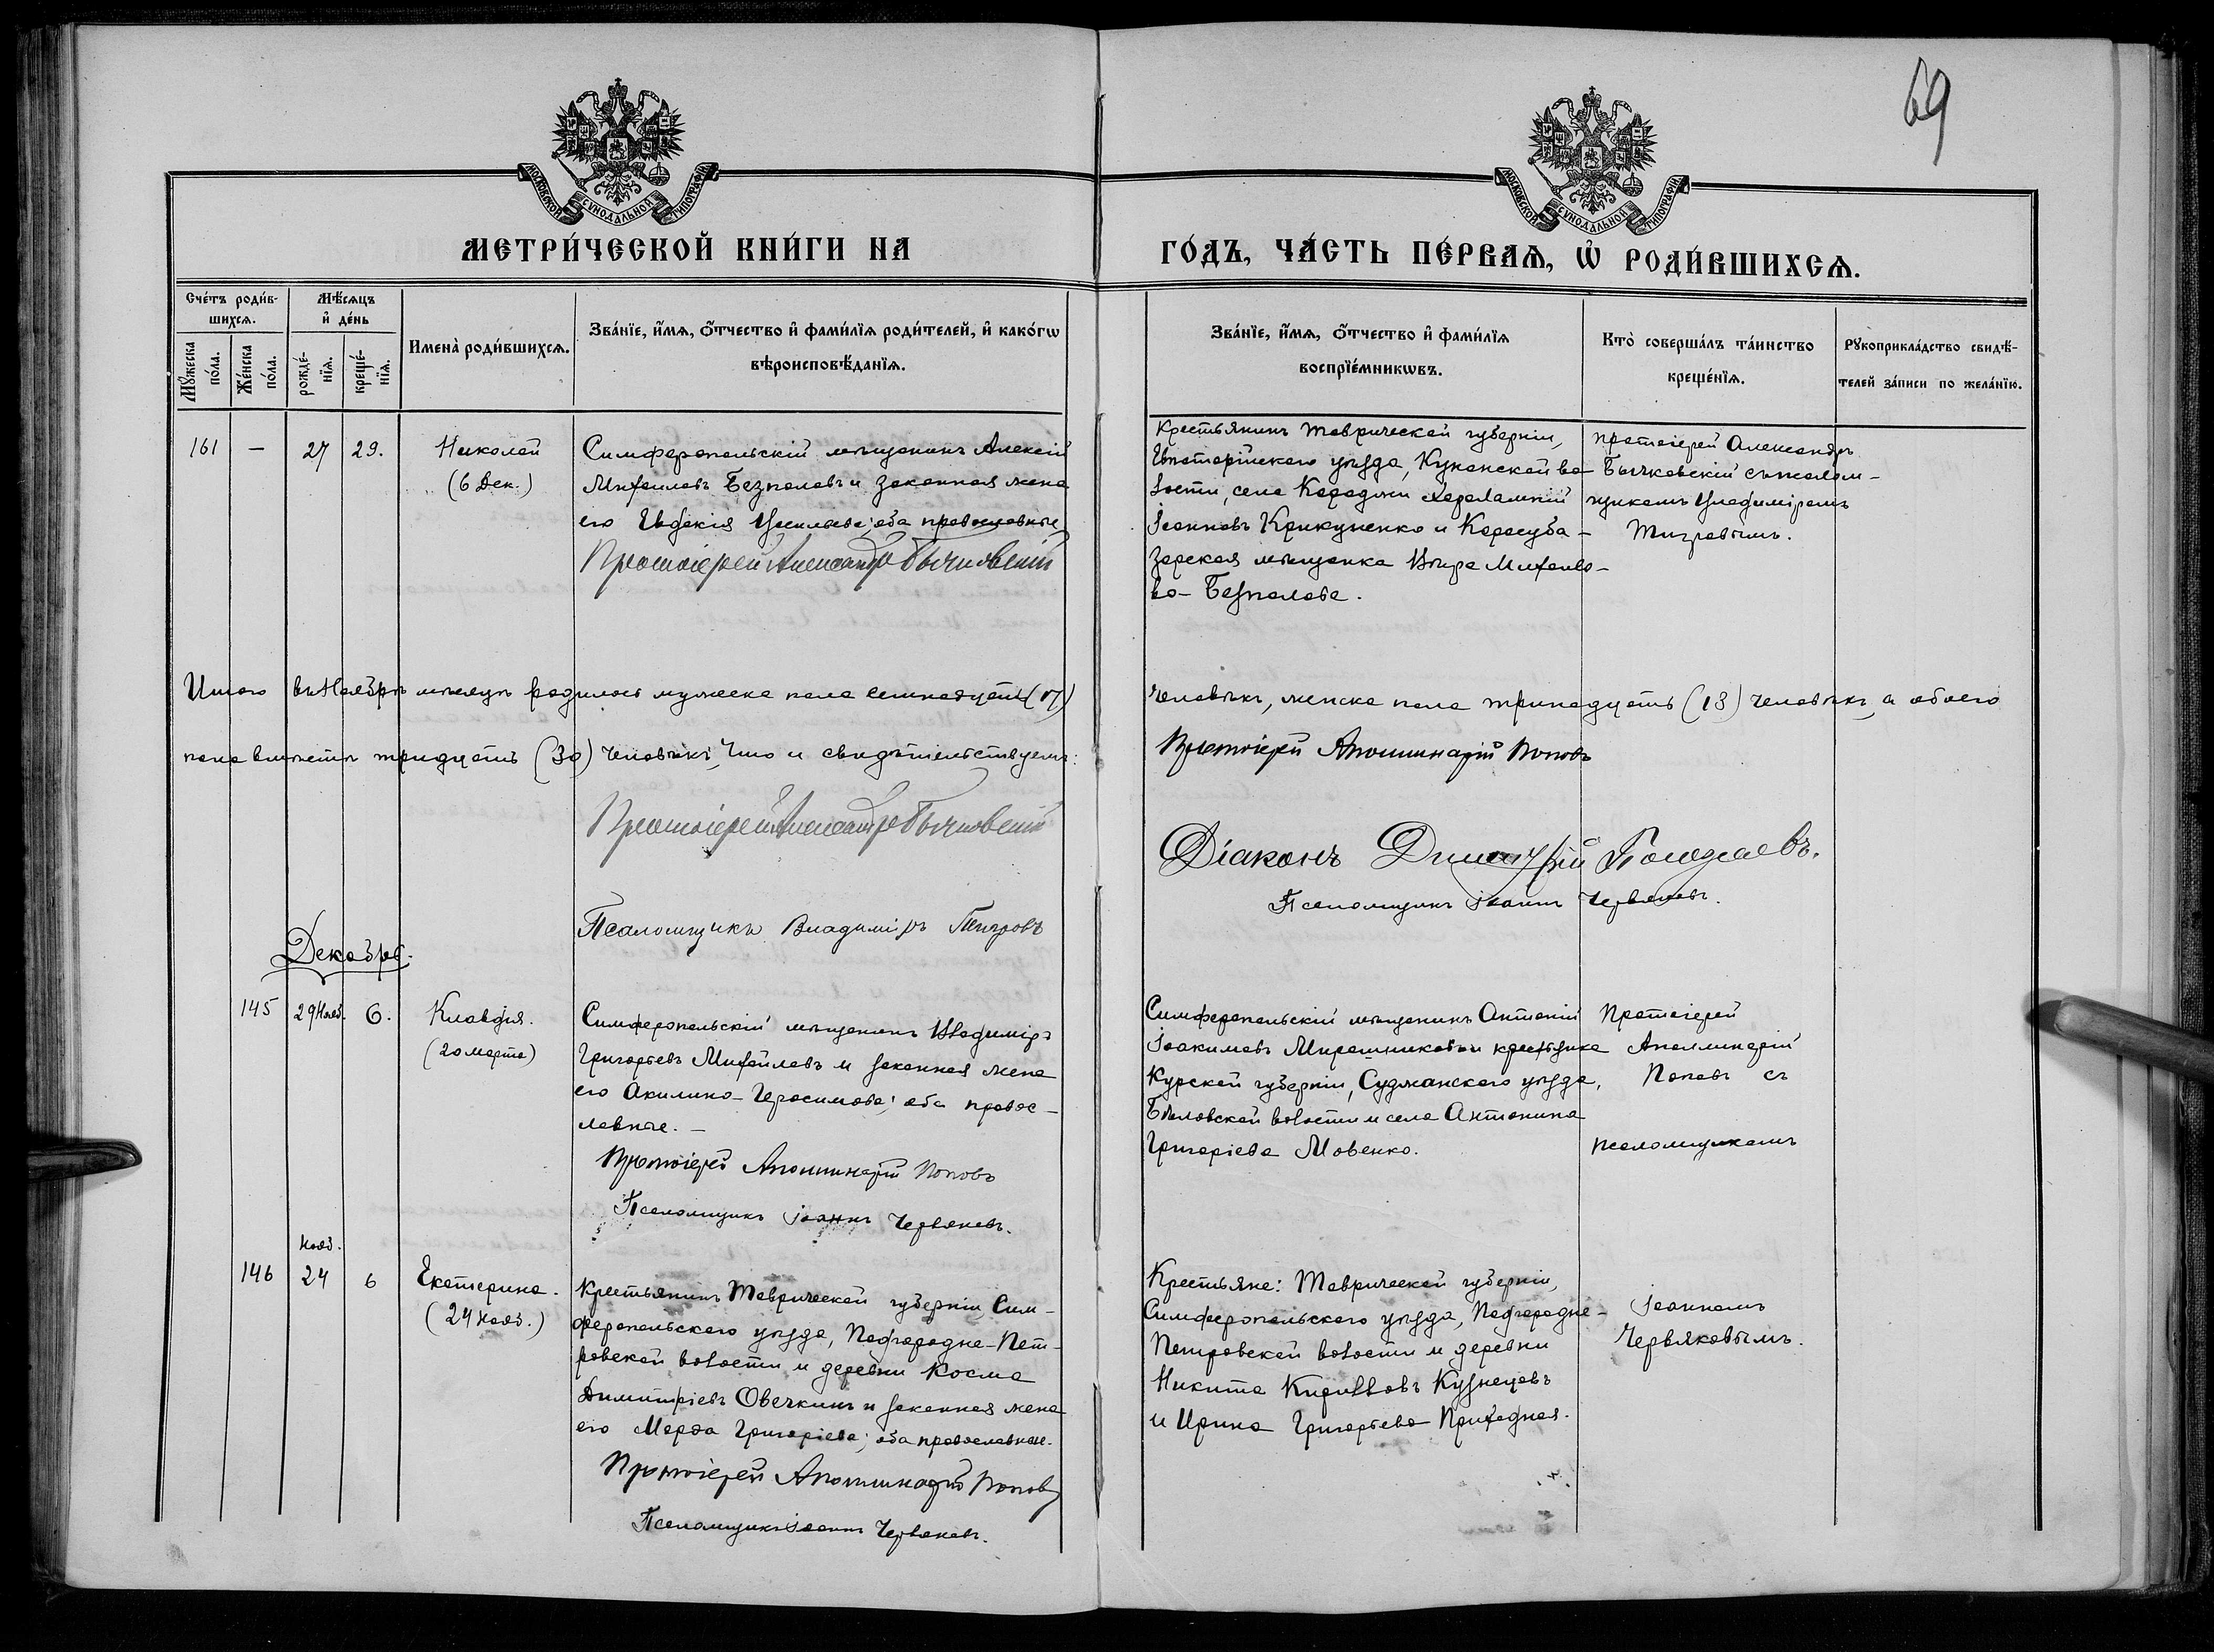 69
МОСКОВСКОЙ СУНОДАЛЬНОЙ ТИПОГРАФІИ
МОСКОВСКОЙ СУНОДАЛЬНОЙ ТИПОГРАФІИ
МЕТРИ́ЧЕСКОЙ КНИ́ГИ НА
ГО́ДЪ, ЧА́СТЬ ПЕ́РВАѦ, Ѡ҆ РОДИ́ВШИХСѦ.
Сче́тъ роди́в-
шихсѧ.
Мѣ́сѧцъ
и҆ де́нь
Мꙋ́жеска
по́ла.
Же́нска
по́ла.
рожде́-
нїѧ.
креще́-
нїѧ.
Имена̀ роди́вшихсѧ.
Зва́нїе, и҆́мѧ, ѻ҆́тчество и҆ фами́лїѧ роди́телей, и҆ како́гѡ
вѣроисповѣ́данїѧ.
Зва́нїе, и҆́мѧ, ѻ҆́тчество и҆ фами́лїѧ
воспрїе́мникѡвъ.
Кто̀ соверша́лъ та́инство
креще́нїѧ.
Рꙋкоприкла́дство свидѣ́-
телей за́писи по жела́нїю.
161 — 27 29.
Николай
(6 Дек.)
Симферопольскій мѣщанинъ Алексій
Михаиловъ Безпаловъ и законная жена
его Евдокія; оба православные
Протоіерей Александръ Бычковскій
Крестьянинъ Таврической губерніи,
Евпаторійскаго уѣзда, Кунанской во-
лости, села Караджи Харалампій
Іоанновъ Крикуненко и Карасуба-
зарская мѣщанка Вѣра Михаило-
ва Безпалова.
протоіерей Александръ
Бычковскій съ псалом-
щикомъ Владиміромъ
Тигровымъ.
Итого въ Ноябрѣ мѣсяцѣ родилось мужеска пола семнадцать (17)
человѣкъ, женска пола тринадцать (13) человѣкъ, а обоего
пола вмѣстѣ тридцать (30) человѣкъ, что и свидѣтельствуемъ:
Протоіерей Аполлинарій Поповъ
Протоіерей Александръ Бычковскій
Діаконъ Димитрій
Псаломщикъ Іоаннъ Червяковъ.
Псаломщикъ Владиміръ Тигровъ
Декабрь.
145 29 Нояб. 6.
Клавдія.
(20 марта)
Симферопольскій мѣщанинъ Владиміръ
Григорьевъ Михайловъ и законная жена
его Акилина Герасимова; оба правос-
лавные. —
Протоіерей Аполлинарій Поповъ
Псаломщикъ Іоаннъ Червяковъ.
Симферопольскій мѣщанинъ Антоній
Іоакимовъ Мирошниковъ и крестьянка
Курской губерніи, Суджанскаго уѣзда,
Бѣловской волости и села Антонина
Григоріева Мовенко.
Протоіерей
Аполлинарій
Поповъ съ
псаломщикомъ
Нояб.
146 24 6
Екатерина.
(24 Нояб.)
Крестьянинъ Таврической губерніи, Сим-
феропольскаго уѣзда, Подгородне-Пет-
ровской волости и деревни Косма
Димитріевъ Овечкинъ и законная жена
его Марѳа Григоріева; оба православные.
Протоіерей Аполлинарій Поповъ
Псаломщикъ Іоаннъ Червяковъ.
Крестьяне: Таврической губерніи,
Симферопольскаго уѣзда, Подгородне-
Петровской волости и деревни
Никита Кирилловъ Кузнецовъ
и Ирина Григорьева Приходная.
Іоанномъ
Червяковымъ.